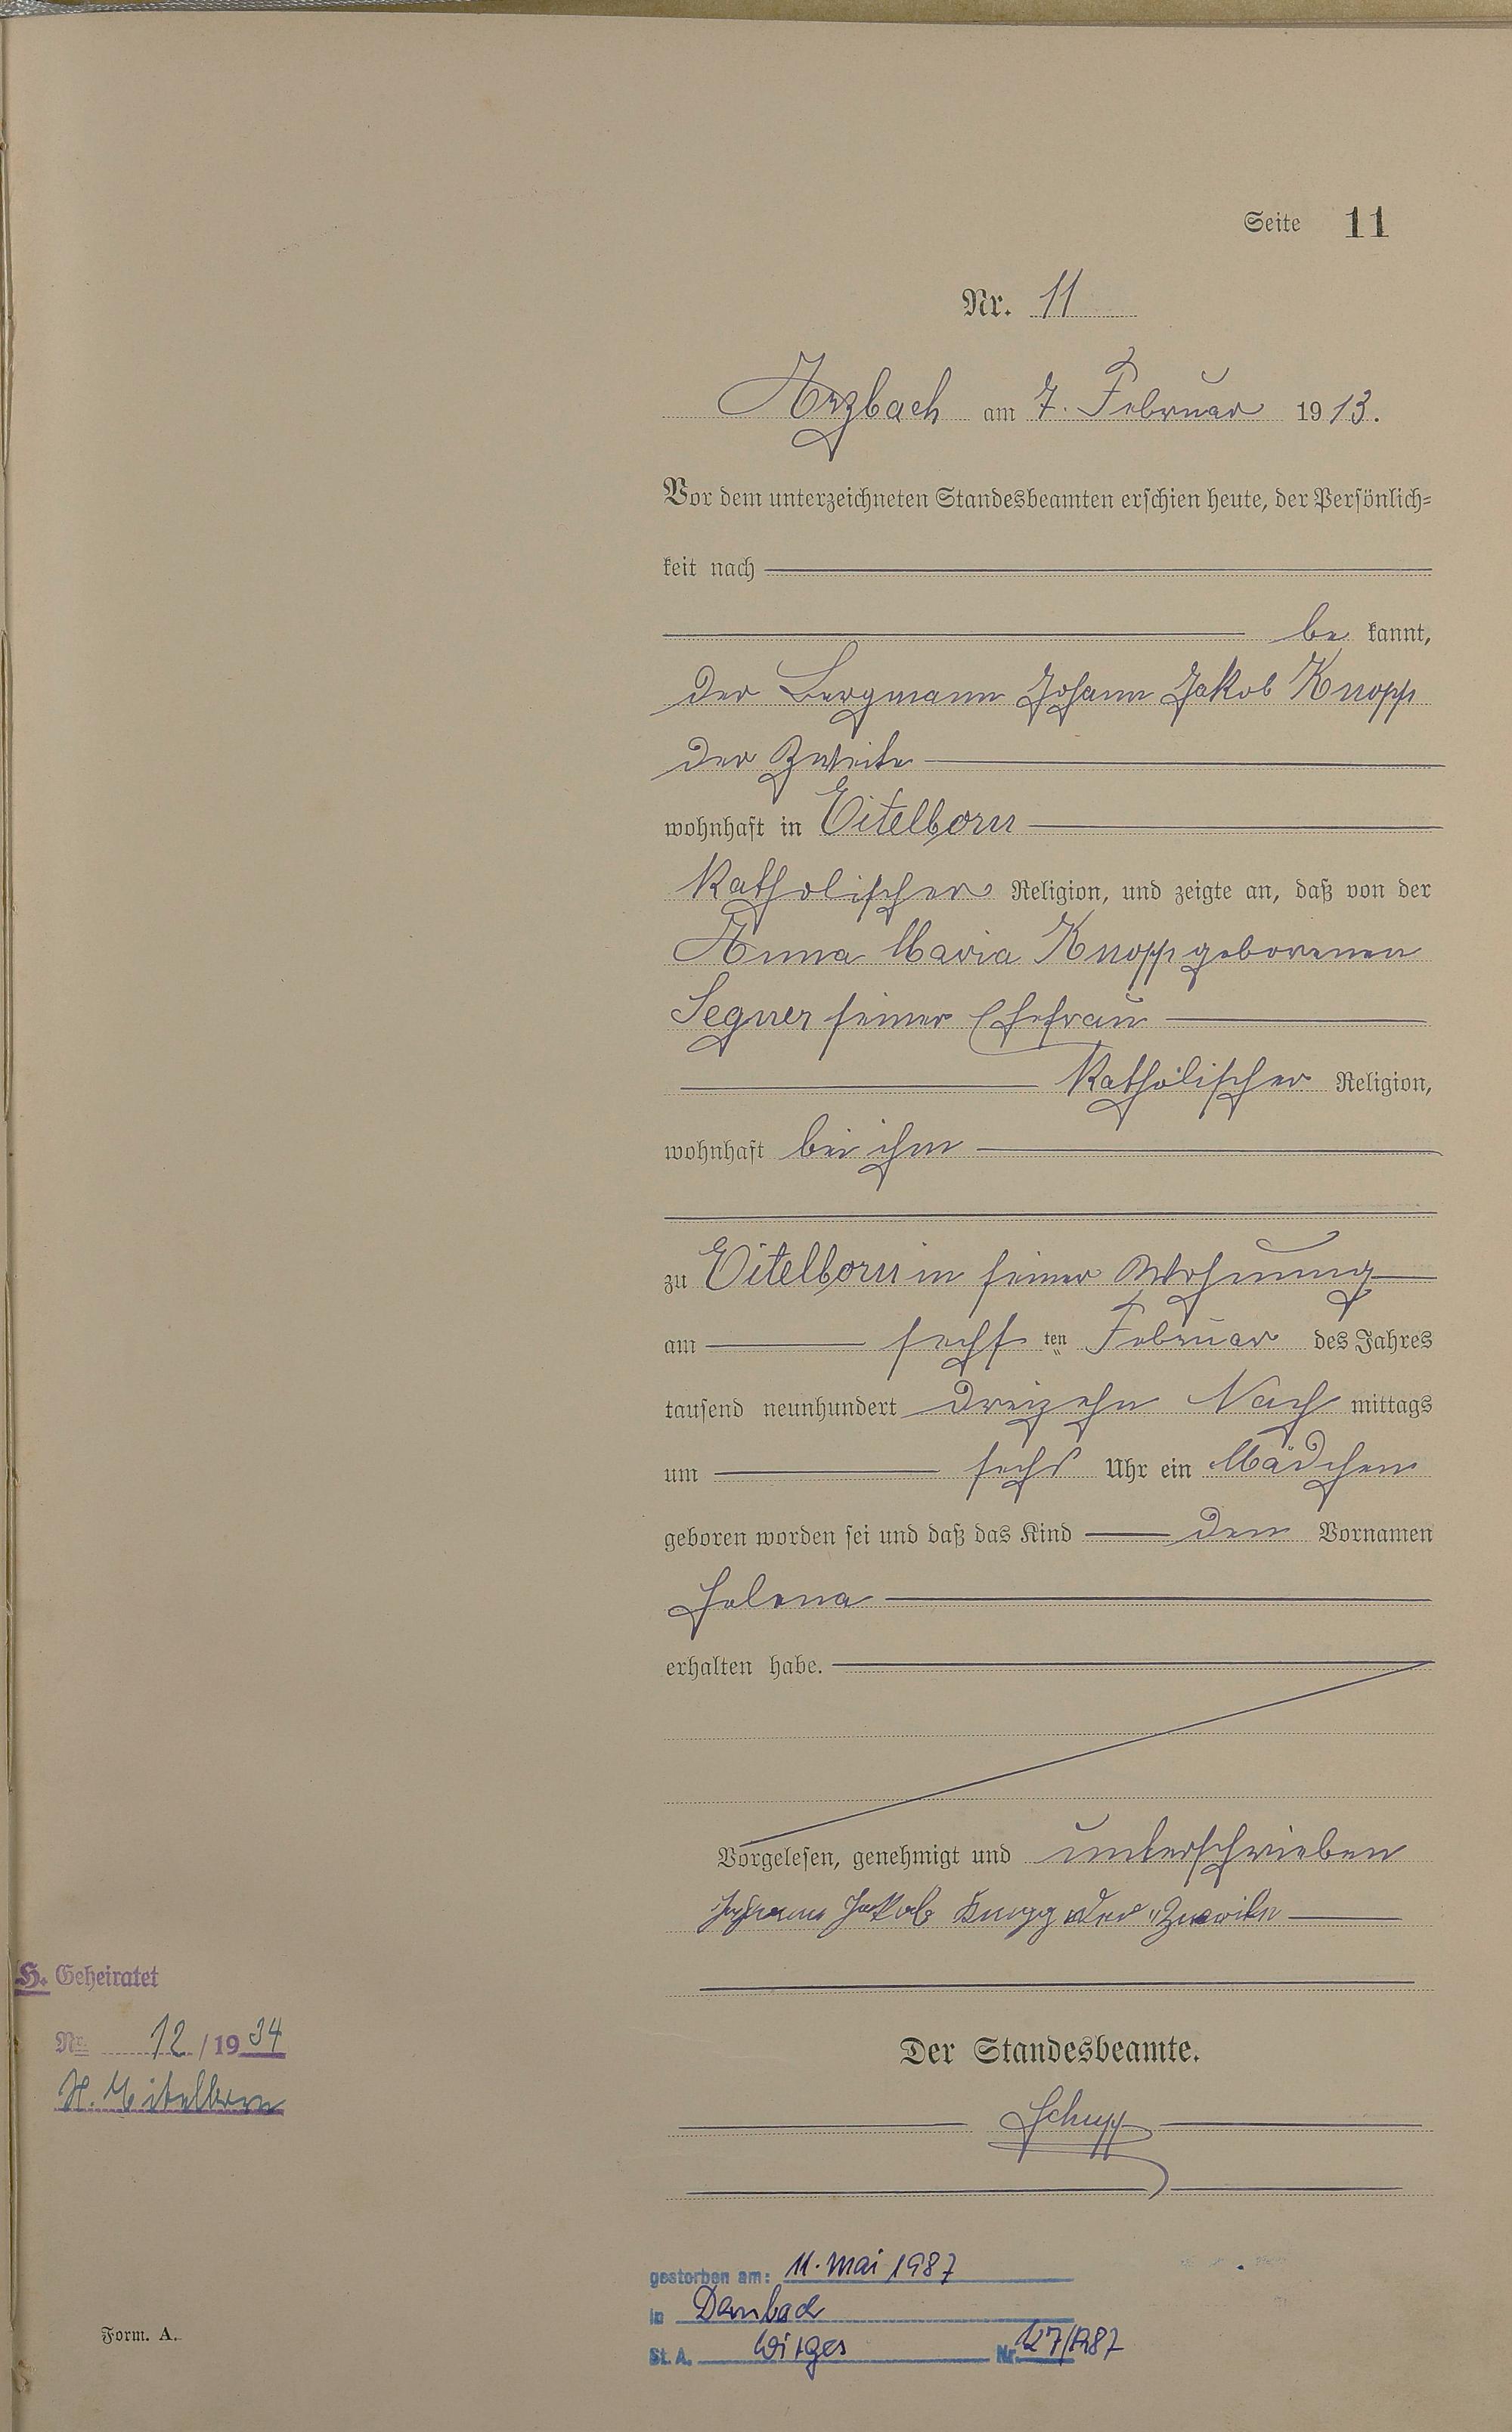 Seite 11
Nr. 11
Arzbach am 7. Februar 1913.
Vor dem unterzeichneten Standesbeamten erschien heute, der Persönlich-
keit nach
be kannt,
der Bergmann Johann Jakob Knopp
der Zweite
wohnhaft in Eitelborn
katholischer Religion, und zeigte an, daß von der
Anna Maria Knopp geborenen
Segner seiner Ehefrau
katholischer Religion,
wohnhaft bei ihm
zu Eitelborn in seiner Wohnung
am sechsten Februar des Jahres
tausend neunhundert dreizehn Nachmittags
um sechs Uhr ein Mädchen
geboren worden sei und daß das Kind den Vornamen
Helena
erhalten habe.
Vorgelesen, genehmigt und unterschrieben
Johann Jakob Knopp der "Zweite
H. Geheiratet
Nr. 12/1934
St. Eitelborn
Der Standesbeamte.
Schupp
gestorben am: 11. Mai 1987
in Dernbach
St. A. Wirges Nr. 127/1987
Form. A.